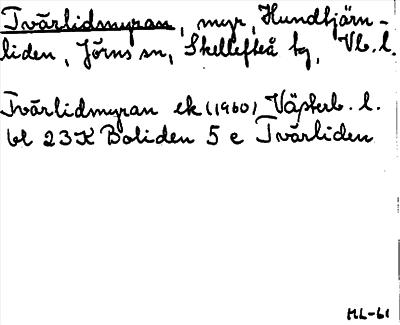 Tvärlidsmyran, myr, Hundtjärn-
liden, Jörns sn, Skellefteå tg, Vb. l.
Tvärlidmyran ek (1960) Västerb. l.
bl 23K Boliden 5 c Tvärliden
ML-61